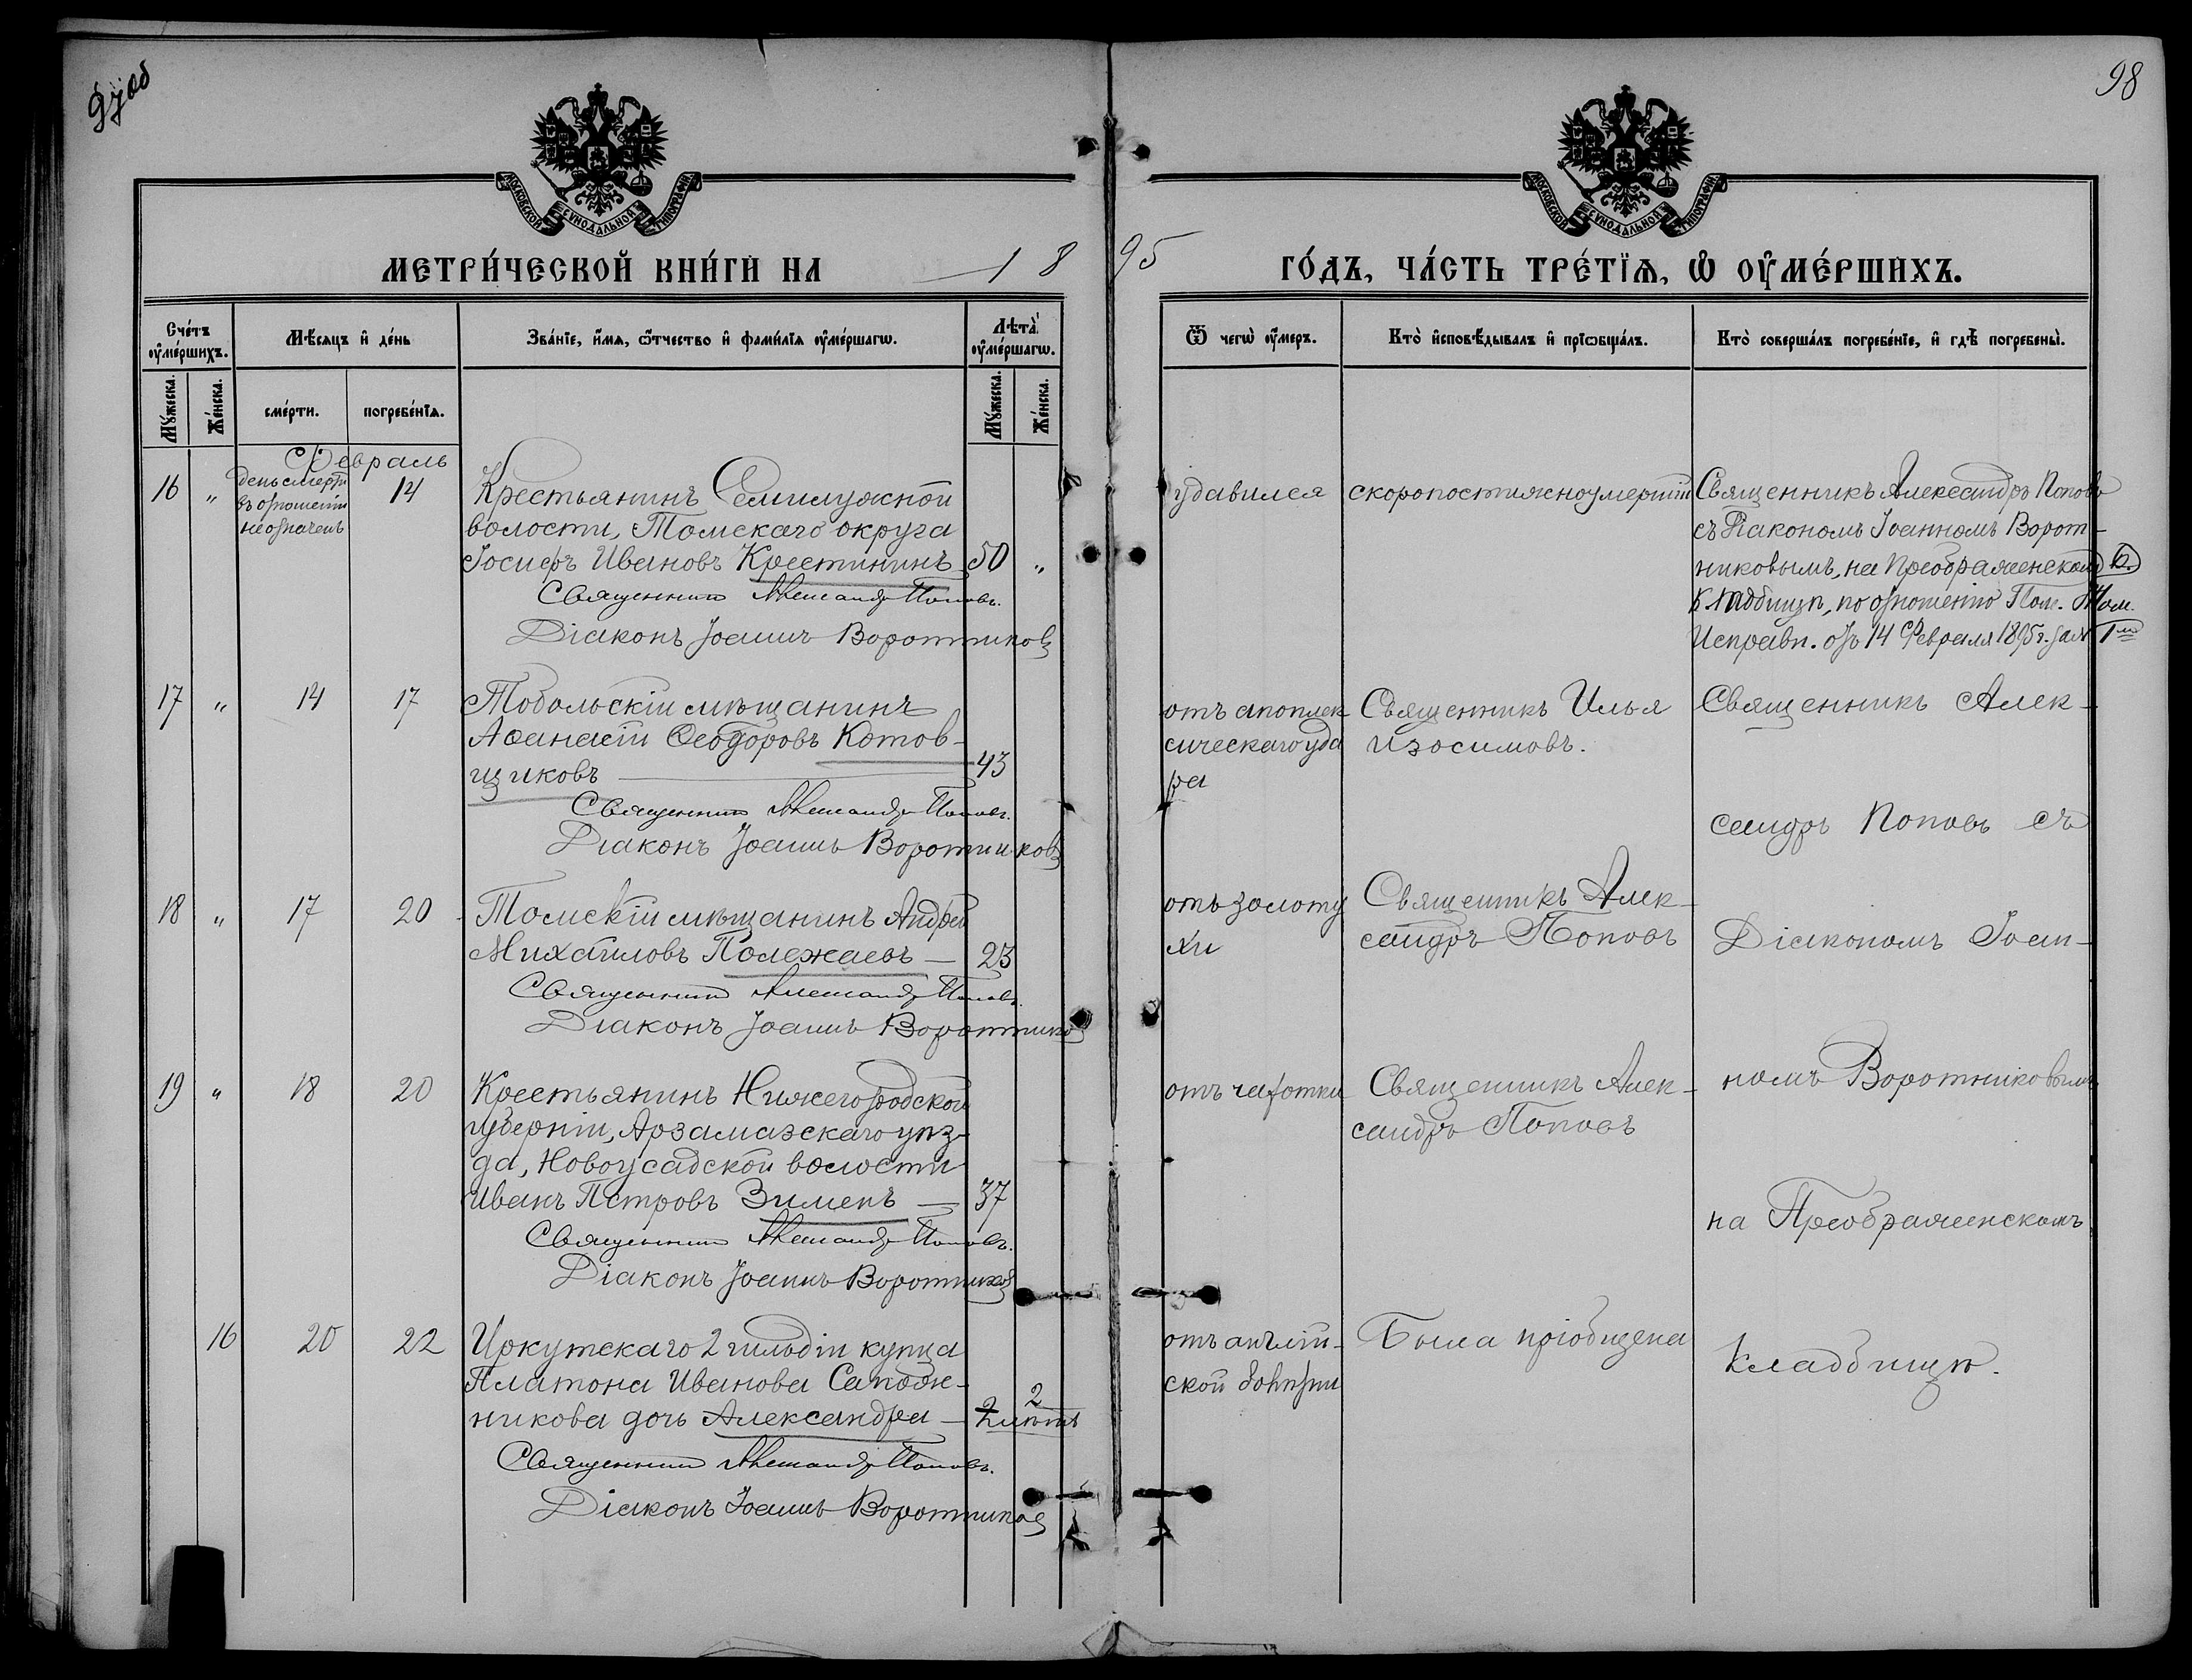 97об
98
МОСКОВСКОЙ СѴНОДАЛЬНОЙ ТИПОГРАФІИ
МОСКОВСКОЙ СѴНОДАЛЬНОЙ ТИПОГРАФІИ
МЕТРИ́ЧЕСКОЙ КНИ́ГИ НА 18
95 ГО́ДЪ, ЧА́СТЬ ТРЕ́ТІЯ, Ѡ ОУМЕ́РШИХЪ.
Сче́тъ оуме́ршихъ.
Мѣ́сяцъ и де́нь
Зва́ніе, и́мя, ѻ́тчество и фами́лія оуме́ршагѡ.
Лѣта̀ оуме́ршагѡ.
Ѿ чегѡ̀ оу́меръ.
Кто̀ исповѣ́дывалъ и пріѡбща́лъ.
Кто̀ соверша́лъ погребе́ніе, и гдѣ̀ погребены̀.
Му́жеска.
Же́нска.
сме́рти.
погребе́нія.
Му́жеска.
Же́нска.
Февраль
16 " день смерти въ отношеніи не означенъ 14
Крестьянинъ Семилужной
волости, Томскаго округа
Іосифъ Ивановъ Крестининъ 50 "
Священникъ Александръ Поповъ.
Діаконъ Іоаннъ Воротниковъ
удавился
скоропостижно умершій
Священникъ Александръ Поповъ
съ Діакономъ Іоанномъ Ворот-
никовымъ, на Преображенскомъ
кладбищѣ, по отношенію Пом. Том.
Исправн. отъ 14 Февраля 1895 г. за №
17 " 14 17
Тобольскій мѣщанинъ
Аѳанасій Ѳеодоровъ Котов-
щиковъ — 43
Священникъ Александръ Поповъ.
Діаконъ Іоаннъ Воротниковъ
отъ апоплек
сическаго уда
ра
Священникъ Илья
Изосимовъ.
Священникъ Алек-
сандръ Поповъ съ
18 " 17 20
Томскій мѣщанинъ Андрей
Михайловъ Полежаевъ — 23
Священникъ Александръ Поповъ.
Діаконъ Іоаннъ Воротников
отъ золоту
хи
Священникъ Алек-
сандръ Поповъ
Діакономъ Іоан-
19 " 18 20
Крестьянинъ Нижегородской
губерніи, Арзамазскаго уѣз-
да, Новоусадской волости
Иванъ Петровъ Зименъ — 37
Священникъ Александръ Поповъ.
Діаконъ Іоаннъ Воротниковъ
отъ чахотки
Священникъ Алек-
сандръ Поповъ
номъ Воротниковымъ
на Преображенскомъ
16 20 22
Иркутскаго 2 гильдіи купца
Платона Иванова Сапож-
никова дочь Александра — 2 лѣтъ 2
Священникъ Александръ Поповъ.
Діаконъ Іоаннъ Воротников
отъ англій-
ской болѣзни
Была пріобщена
кладбищѣ.